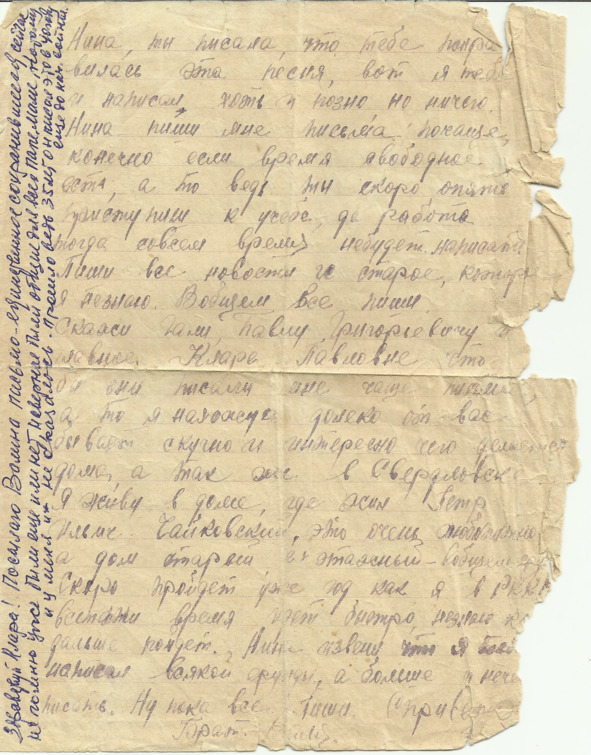 Нина, ты писала, что тебе понра
вилась эта песня, вот я тебе
и написал, хоть и позно но ничего.
Нина пиши мне письма почаще,
конечно если время свободное
есть, а то ведь ты скоро опять
приступиш к учебе, да работа
тогда совсем время небудет написать
Пиши все новости и старое, которое
я незнаю. Вобщем все пиши.
Скажи Гали, Павлу Григорьевичу и
главное Кларе Павловне что
бы они писали мне чаще письма
а то я нахожусь далеко от вас
бывает скучно и интересно чего делается
дома, а так же в Свердловске
Я живу в доме, где жил Петр
Ильич Чайковский, это очень
а дом старый этажный - вобщем
Скоро пройдет уже год как я в РККА
время идет быстро, незнаю
дальше пойдет. Нина извени что я тебе
написал всякой ерунды, а больше и нече
писать. Ну пока все. Пиши. С привет
Брат.
Здравствуй Клара! Посылаю Валина письмо - единственное сохранившееся, сейчас
не помню уже были еще или нет, наверное были общие для всех папе, маме,
и у меня их не оказалось. Прошло ведь 35 лет, он писал это в
еще до нач. войны.